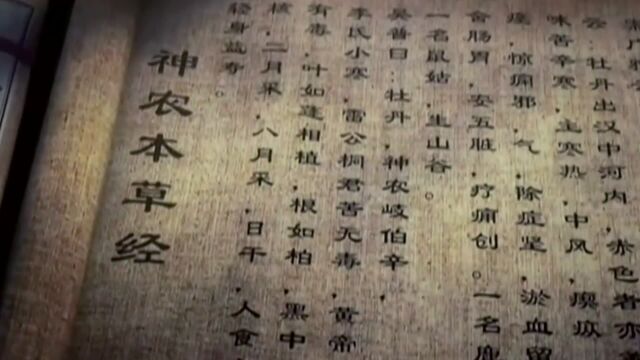 云:牡丹出汉中河内,赤色者亦
味苦辛寒,主寒热,中风,瘈疭
痉,惊痫邪,气,除症坚,淤血留
舍肠胃,安五脏,疗痈创。一名鹿
一名鼠姑,生山谷。
吴普曰:牡丹,神农岐伯辛,
李氏小寒,雷公桐君苦无毒,黄帝
有毒,叶如蓬相植,根如柏,黑中
核,二月采,八月采,日干,人食
轻身益寿
神农本草经